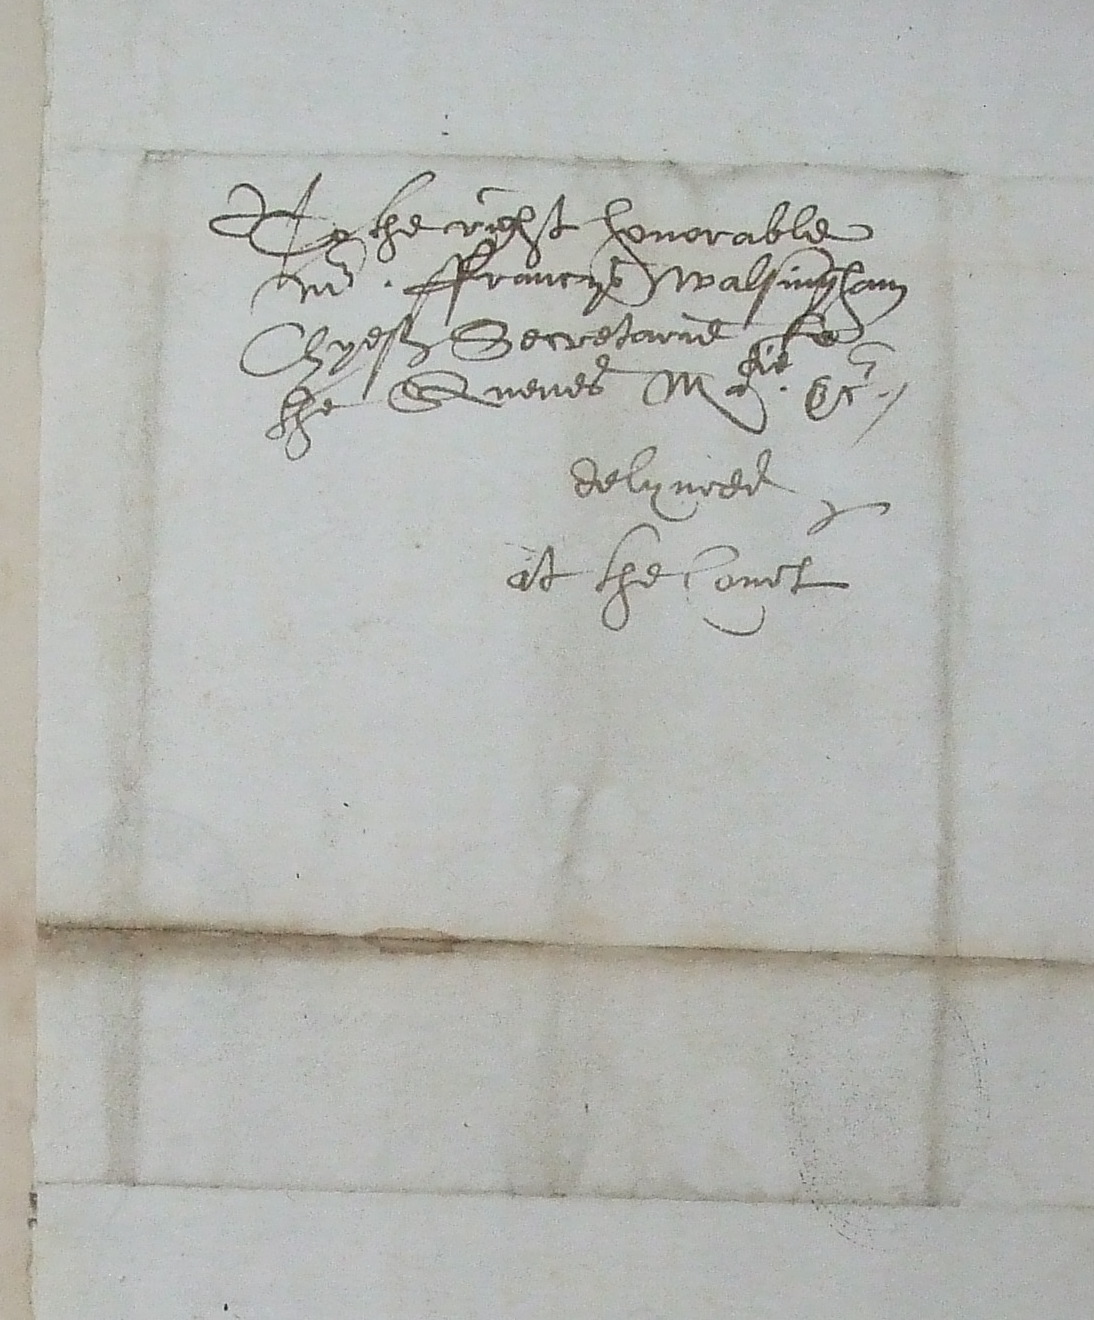 To the right honorable
mr. ffrancys Walsingham
Chyeff Secretarie to
the Quenes Matie. &c.
delyuered
at the Court